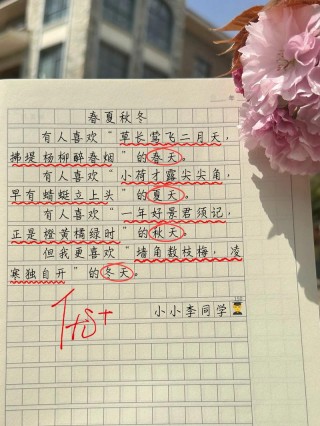 春夏秋冬
有人喜欢“草长莺飞二月天，
拂堤杨柳醉春烟”的春天。
有人喜欢“小荷才露尖尖角，
早有蜻蜓立上头”的夏天。
有人喜欢“一年好景君须记，
正是橙黄橘绿时”的秋天。
但我更喜欢“墙角数枝梅，凌
寒独自开”的冬天。
小小李同学